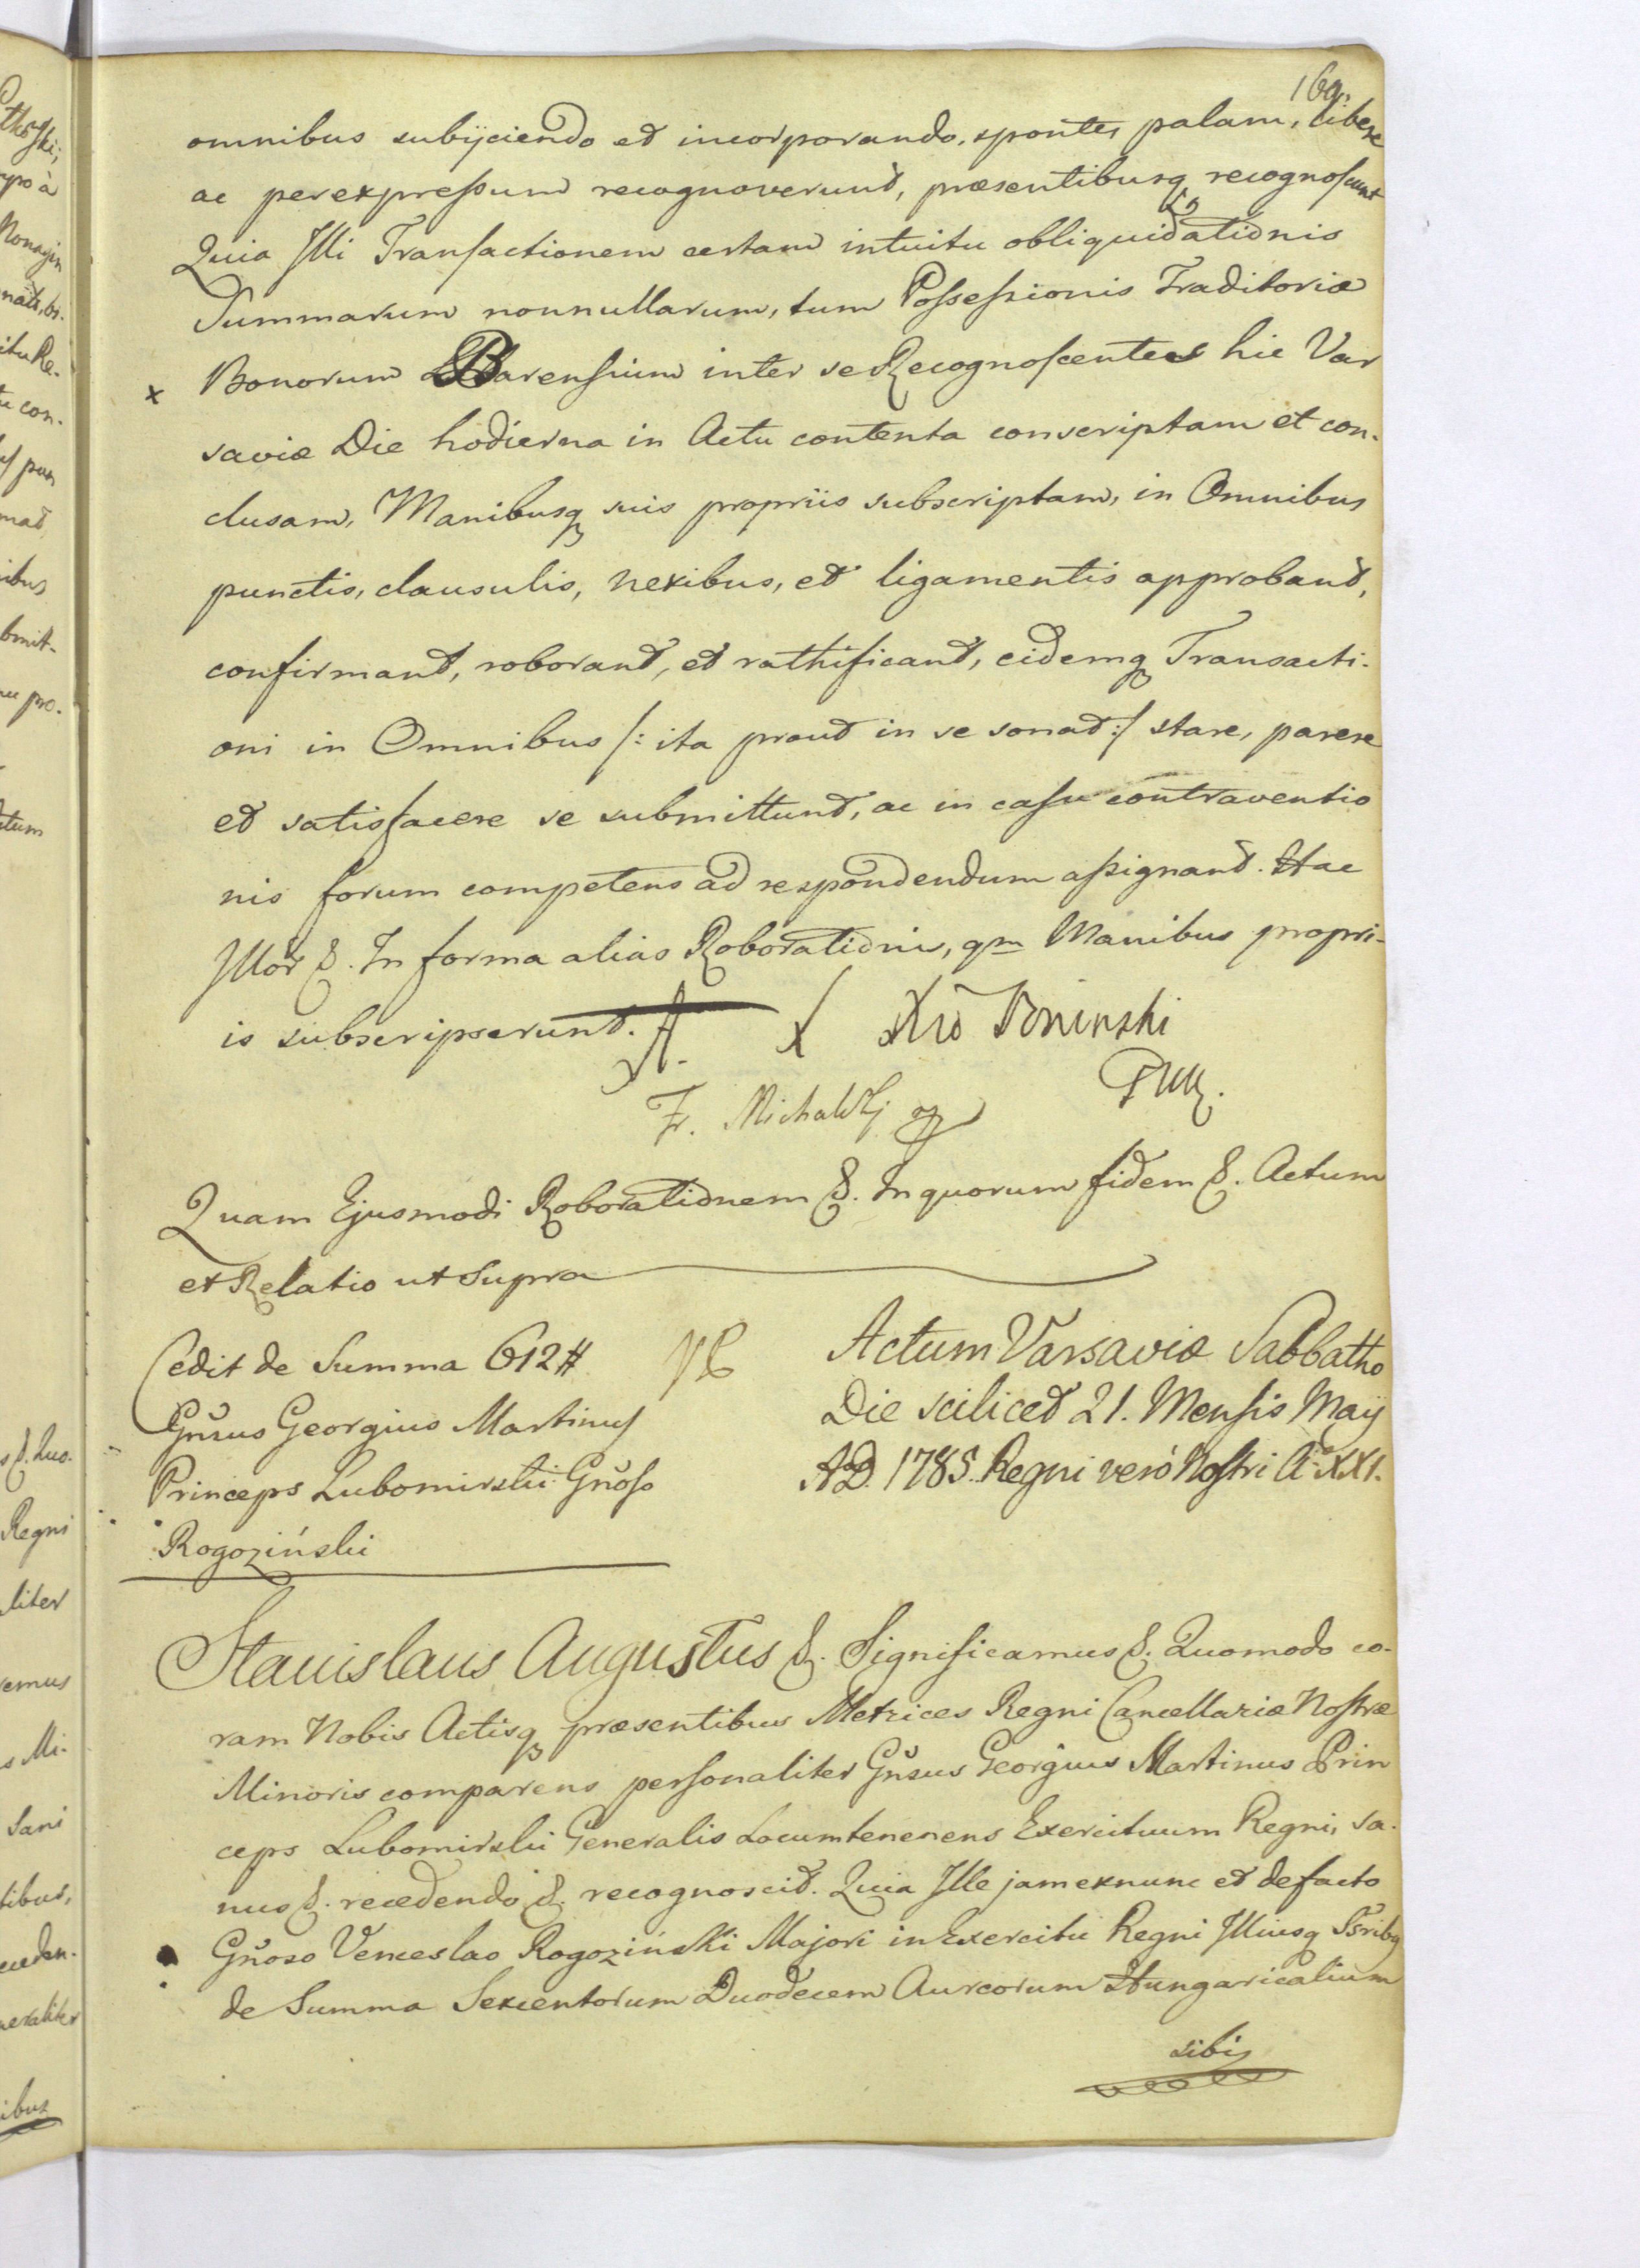 169.
omnibus subijciendo et incorporando, sponte, palam, libere
ac perexpressum recognoverunt, præsentibusq recognoscunt
Quia Illi Transactionem certam intuitu obliquidationis
Summarum nonnullarum, tum Possessionis Traditoriæ
x Bonorum Barensium inter se Recognoscentes hic Var
saviæ Die hodierna in Actu contenta conscriptam et con-
clusam, Manibusq suis propriis subscriptam, in Omnibus
punctis, clausulis, nexibus, et ligamentis approbant,
confirmant, roborant, et rathificant, eidemq Transacti-
oni in Omnibus /: ita prout in se sonat :/ stare, parere
et satisfacere se submittunt, ac in casu contraventio
nis forum competens ad respondendum assignant. Hac
Illor &. In forma alias Roborationis, qm Manibus propri-
is subscripserunt. A. X Xże Poninski
Fr. Michalski
Quam Ejusmodi Roborationem &. In quorum fidem &. Actum
et Relatio ut Supra
Cedit de Summa 612 #
Gnsus Georgius Martinus
Princeps Lubomirski Gnoso
Rogoziński
Actum Varsaviæ Sabbatho
Die scilicet 21. Mensis Maij
AD. 1785. Regni verò Nostri Ao XXI.
Stanislaus Augustus &. Significamus &. Quomodo co-
ram Nobis Actisq præsentibus Metrices Regni Cancellariæ Nostræ
Minoris comparens personaliter Gnsus Georgius Martinus Prin
ceps Lubomirski Generalis Locumtenenens Exercituum Regni, sa-
nus &. recedendo &. recognoscit. Quia Ille jam exnunc et de facto
Gnoso Venceslao Rogoziński Majori in Exercitu Regni Illiusq Ssribq
de Summa Sexcentorum Duodecem Aureorum Hungaricalium
sibi